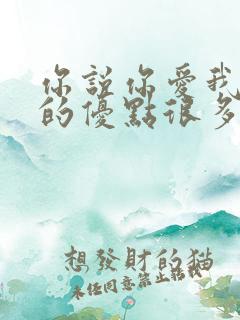 你說你愛我
的優點很多
想發財的猫
未经同意禁止转载